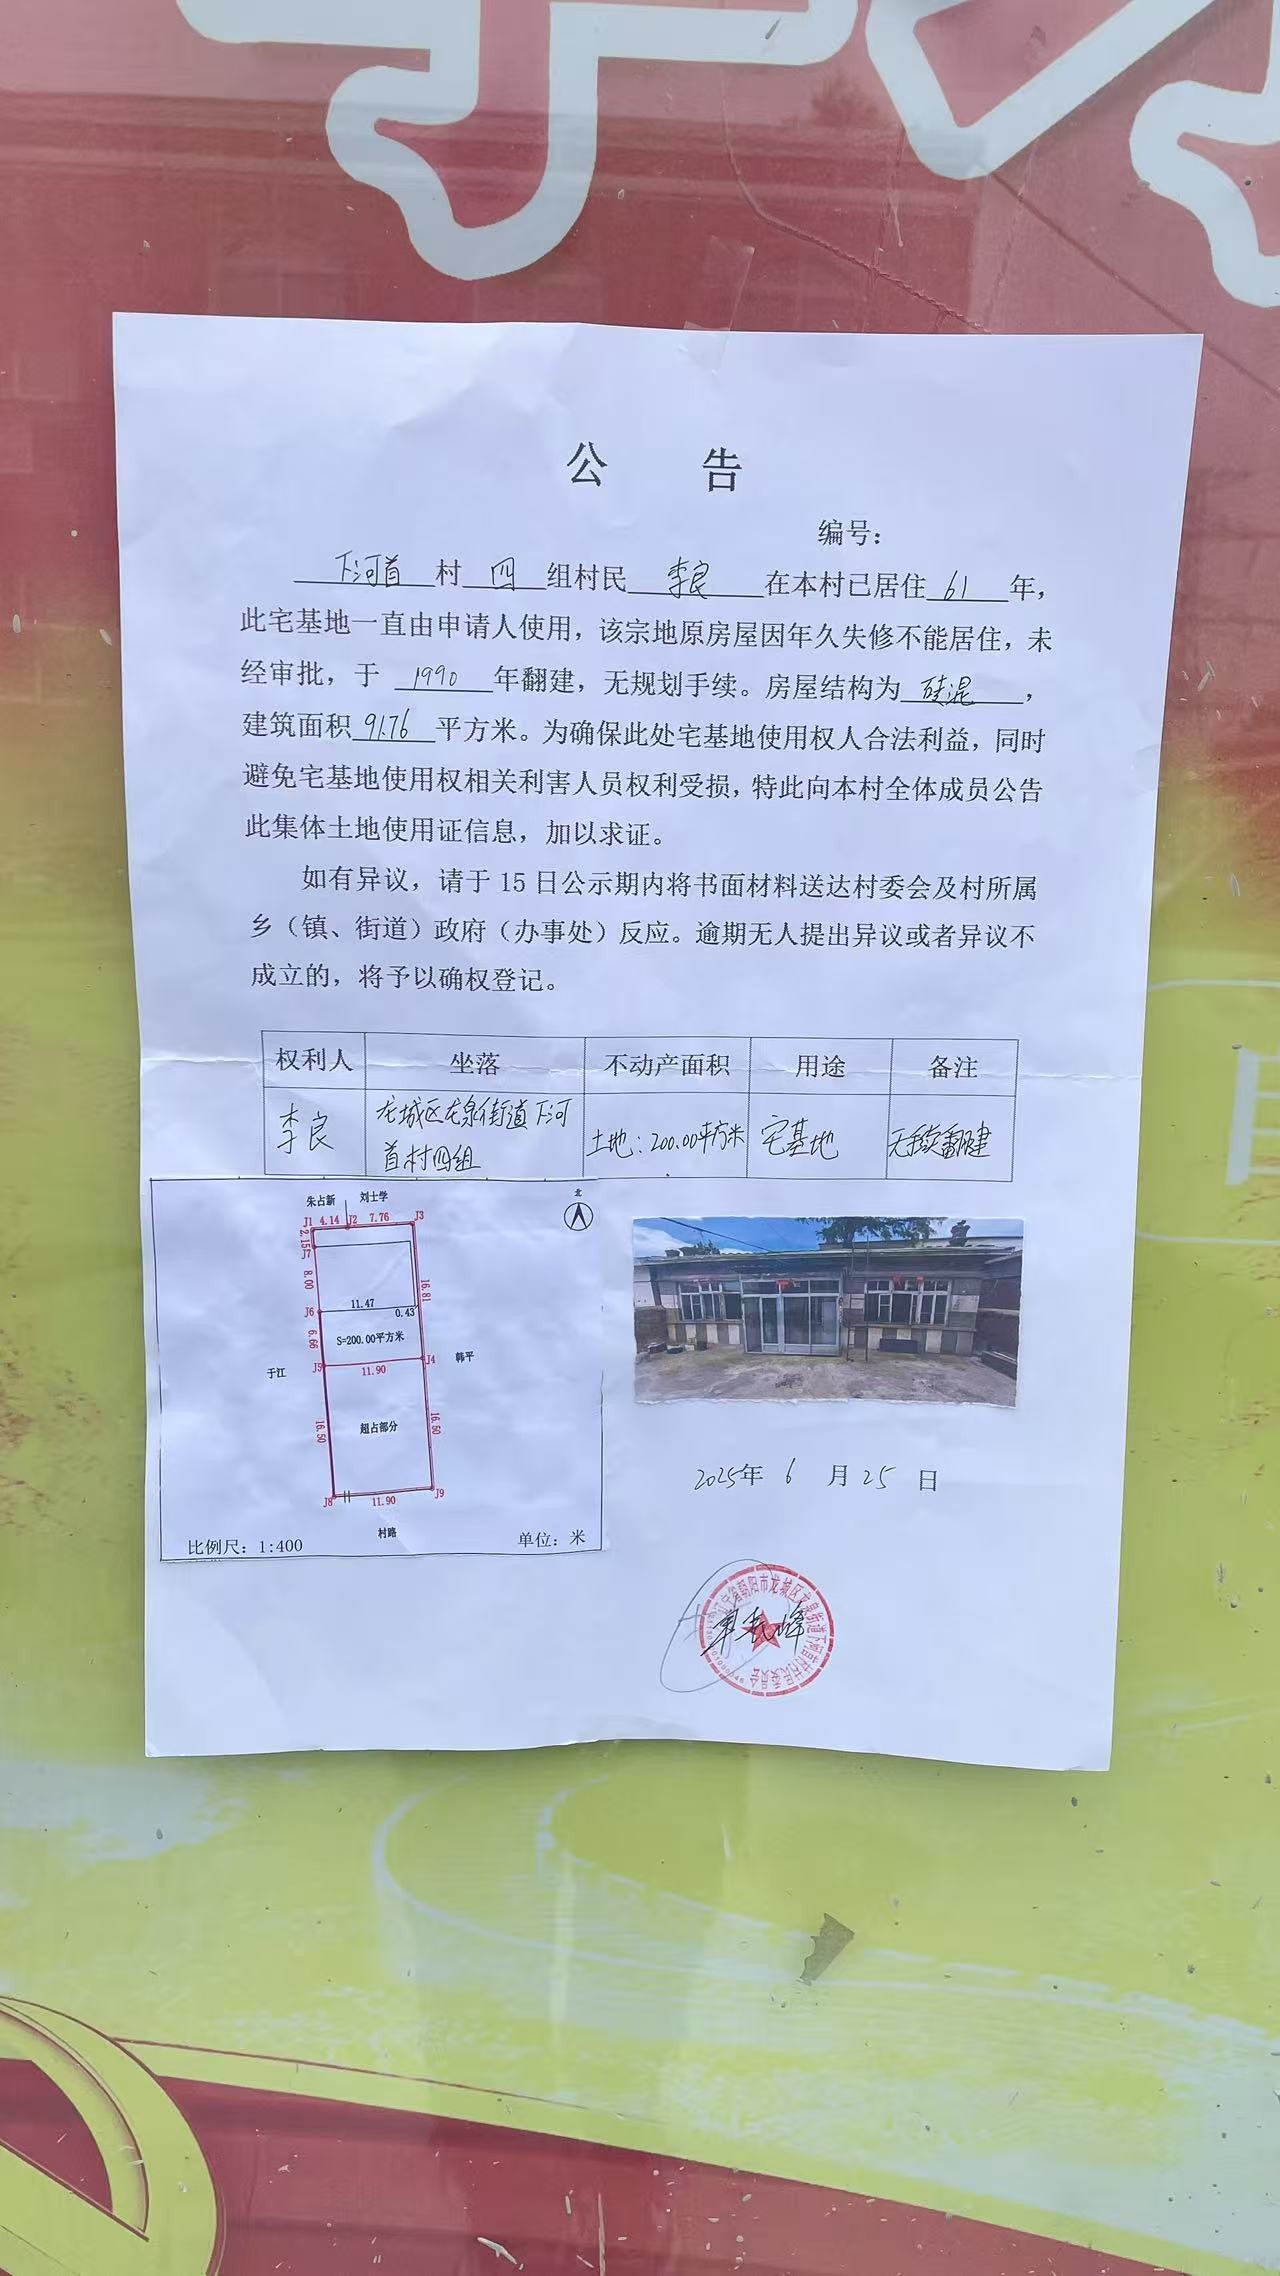 公 告
编号：
下河首 村 四 组村民 李良 在本村已居住 61 年，
此宅基地一直由申请人使用，该宗地原房屋因年久失修不能居住，未
经审批，于 1990 年翻建，无规划手续。房屋结构为 硅混 ，
建筑面积 91.76 平方米。为确保此处宅基地使用权人合法利益，同时
避免宅基地使用权相关利害人员权利受损，特此向本村全体成员公告
此集体土地使用证信息，加以求证。
如有异议，请于 15 日公示期内将书面材料送达村委会及村所属
乡（镇、街道）政府（办事处）反应。逾期无人提出异议或者异议不
成立的，将予以确权登记。
权利人 坐落 不动产面积 用途 备注
李良 龙城区龙泉街道下河 土地：200.00平方米 宅基地 无手续翻建
首村四组
朱占新 刘士学 北
J1 4.14 J2 7.76 J3
2.15
J7
8.00 16.81
J6 11.47 0.43
6.66 S=200.00平方米
于江 J5 11.90 J4 韩平
16.50 超占部分 16.50
J8 11.90 J9
村路
比例尺：1:400 单位：米
2025年 6 月 25 日
辽宁省朝阳市龙城区龙泉街道下河首村村民委员会